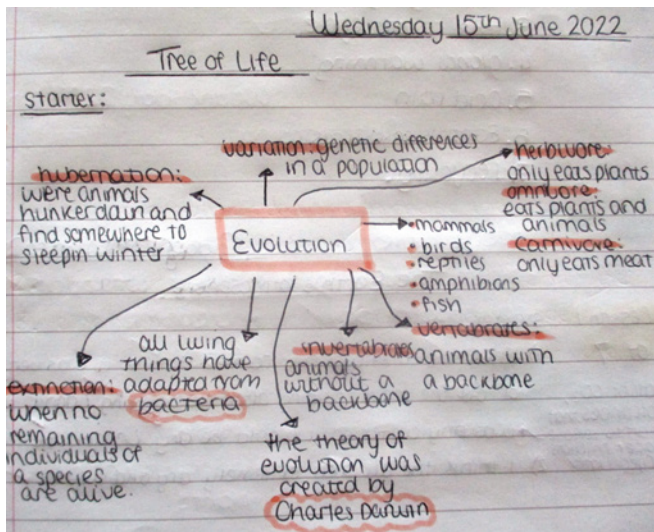 Wednesday 15th June 2022
Tree of Life
starter:
variation: genetic differences
in a population
hubernation:
were animals
hunkerdown and
find somewhere to
sleepin winter
herbivore:
only eats plants
omnivore:
eats plants and
animals
carnivore:
only eats meat
Evolution
• mammals
• birds
• reptiles
• amphibians
• fish
vertabrates:
animals with
a backbone
invertabrates
animals
without a
backbone
all living
things have
adapted from
bacteria
extinction:
when no
remaining
individuals of
a species
are alive.
the theory of
evolution was
created by
Charles Darwin